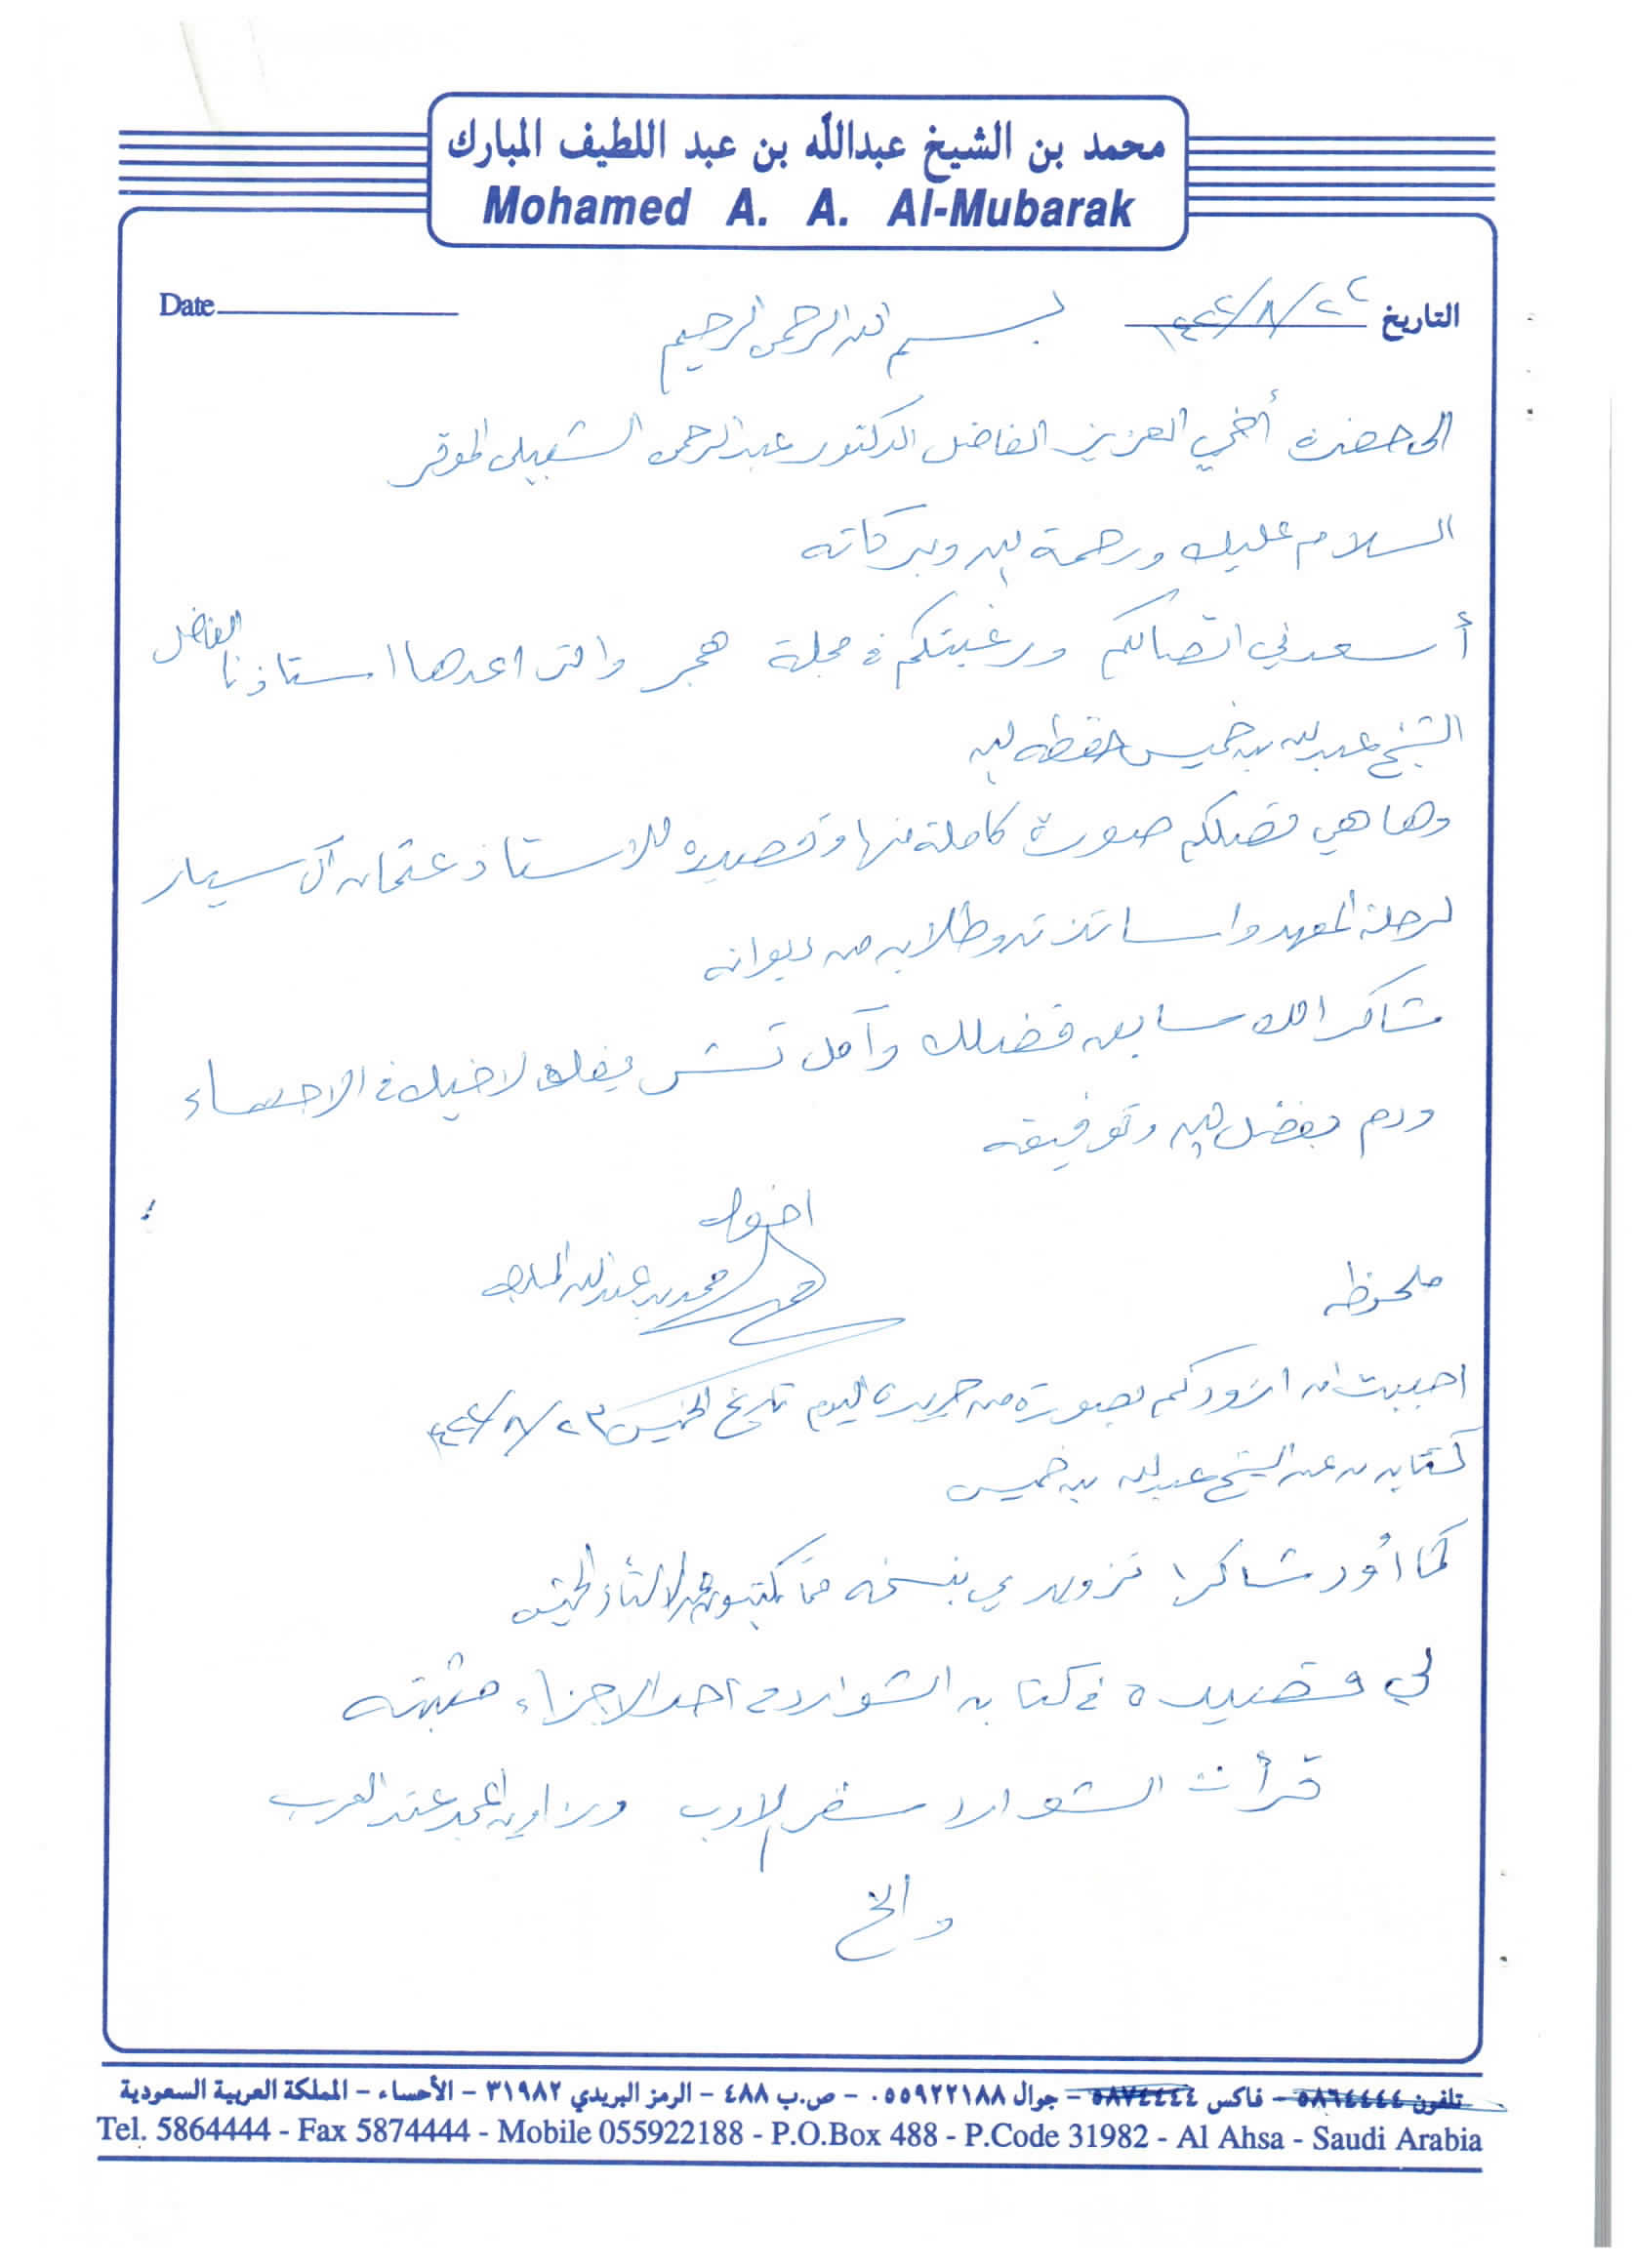 محمد بن الشيخ عبدالله بن عبد اللطيف المبارك
Mohamed A. A. Al-Mubarak
التاريخ ١٤٢٢/٨/٢٢
Date
بسم الله الرحمن الرحيم
الى حضرة أخي العزيز الفاضل الدكتور عبدالرحمن الشبيلي الموقر
السلام عليك ورحمة الله وبركاته
أسعدني اتصالكم ورغبتكم في مجلة هجر والتي اعدها استاذنا الفاضل
الشيخ عبدالله بن خميس حفظه الله
وها هي تصلكم صورة كاملة منها وقصيده للاستاذ عثمان آل سيار
لرحلة المعهد واساتذته وطلابه من ديوانه
شاكرا لك سابق فضلك وآمل تشريفك لاخيك في الاحساء
ودم بفضل الله وتوفيقه
اخوك
محمد بن عبدالله المبارك
ملحوظه
احببت ان ازودكم بصورة من جريدة اليوم تاريخ الخميس ١٤٢٢/٨/٢٣
كتابه عن الشيخ عبدالله بن خميس
كما أود شاكرا تزويدي بنسخه مما
لي قصيده في كتابه الشوارد في احد الاجزاء مثبته
قرأت الشوارد سفر الادب وديوان المجد عند العرب
والخ
تلفون ٥٨٦٤٤٤٤ - فاكس ٥٨٧٤٤٤٤ - جوال ٠٥٥٩٢٢١٨٨ - ص.ب ٤٨٨ - الرمز البريدي ٣١٩٨٢ - الأحساء - المملكة العربية السعودية
Tel. 5864444 - Fax 5874444 - Mobile 055922188 - P.O.Box 488 - P.Code 31982 - Al Ahsa - Saudi Arabia